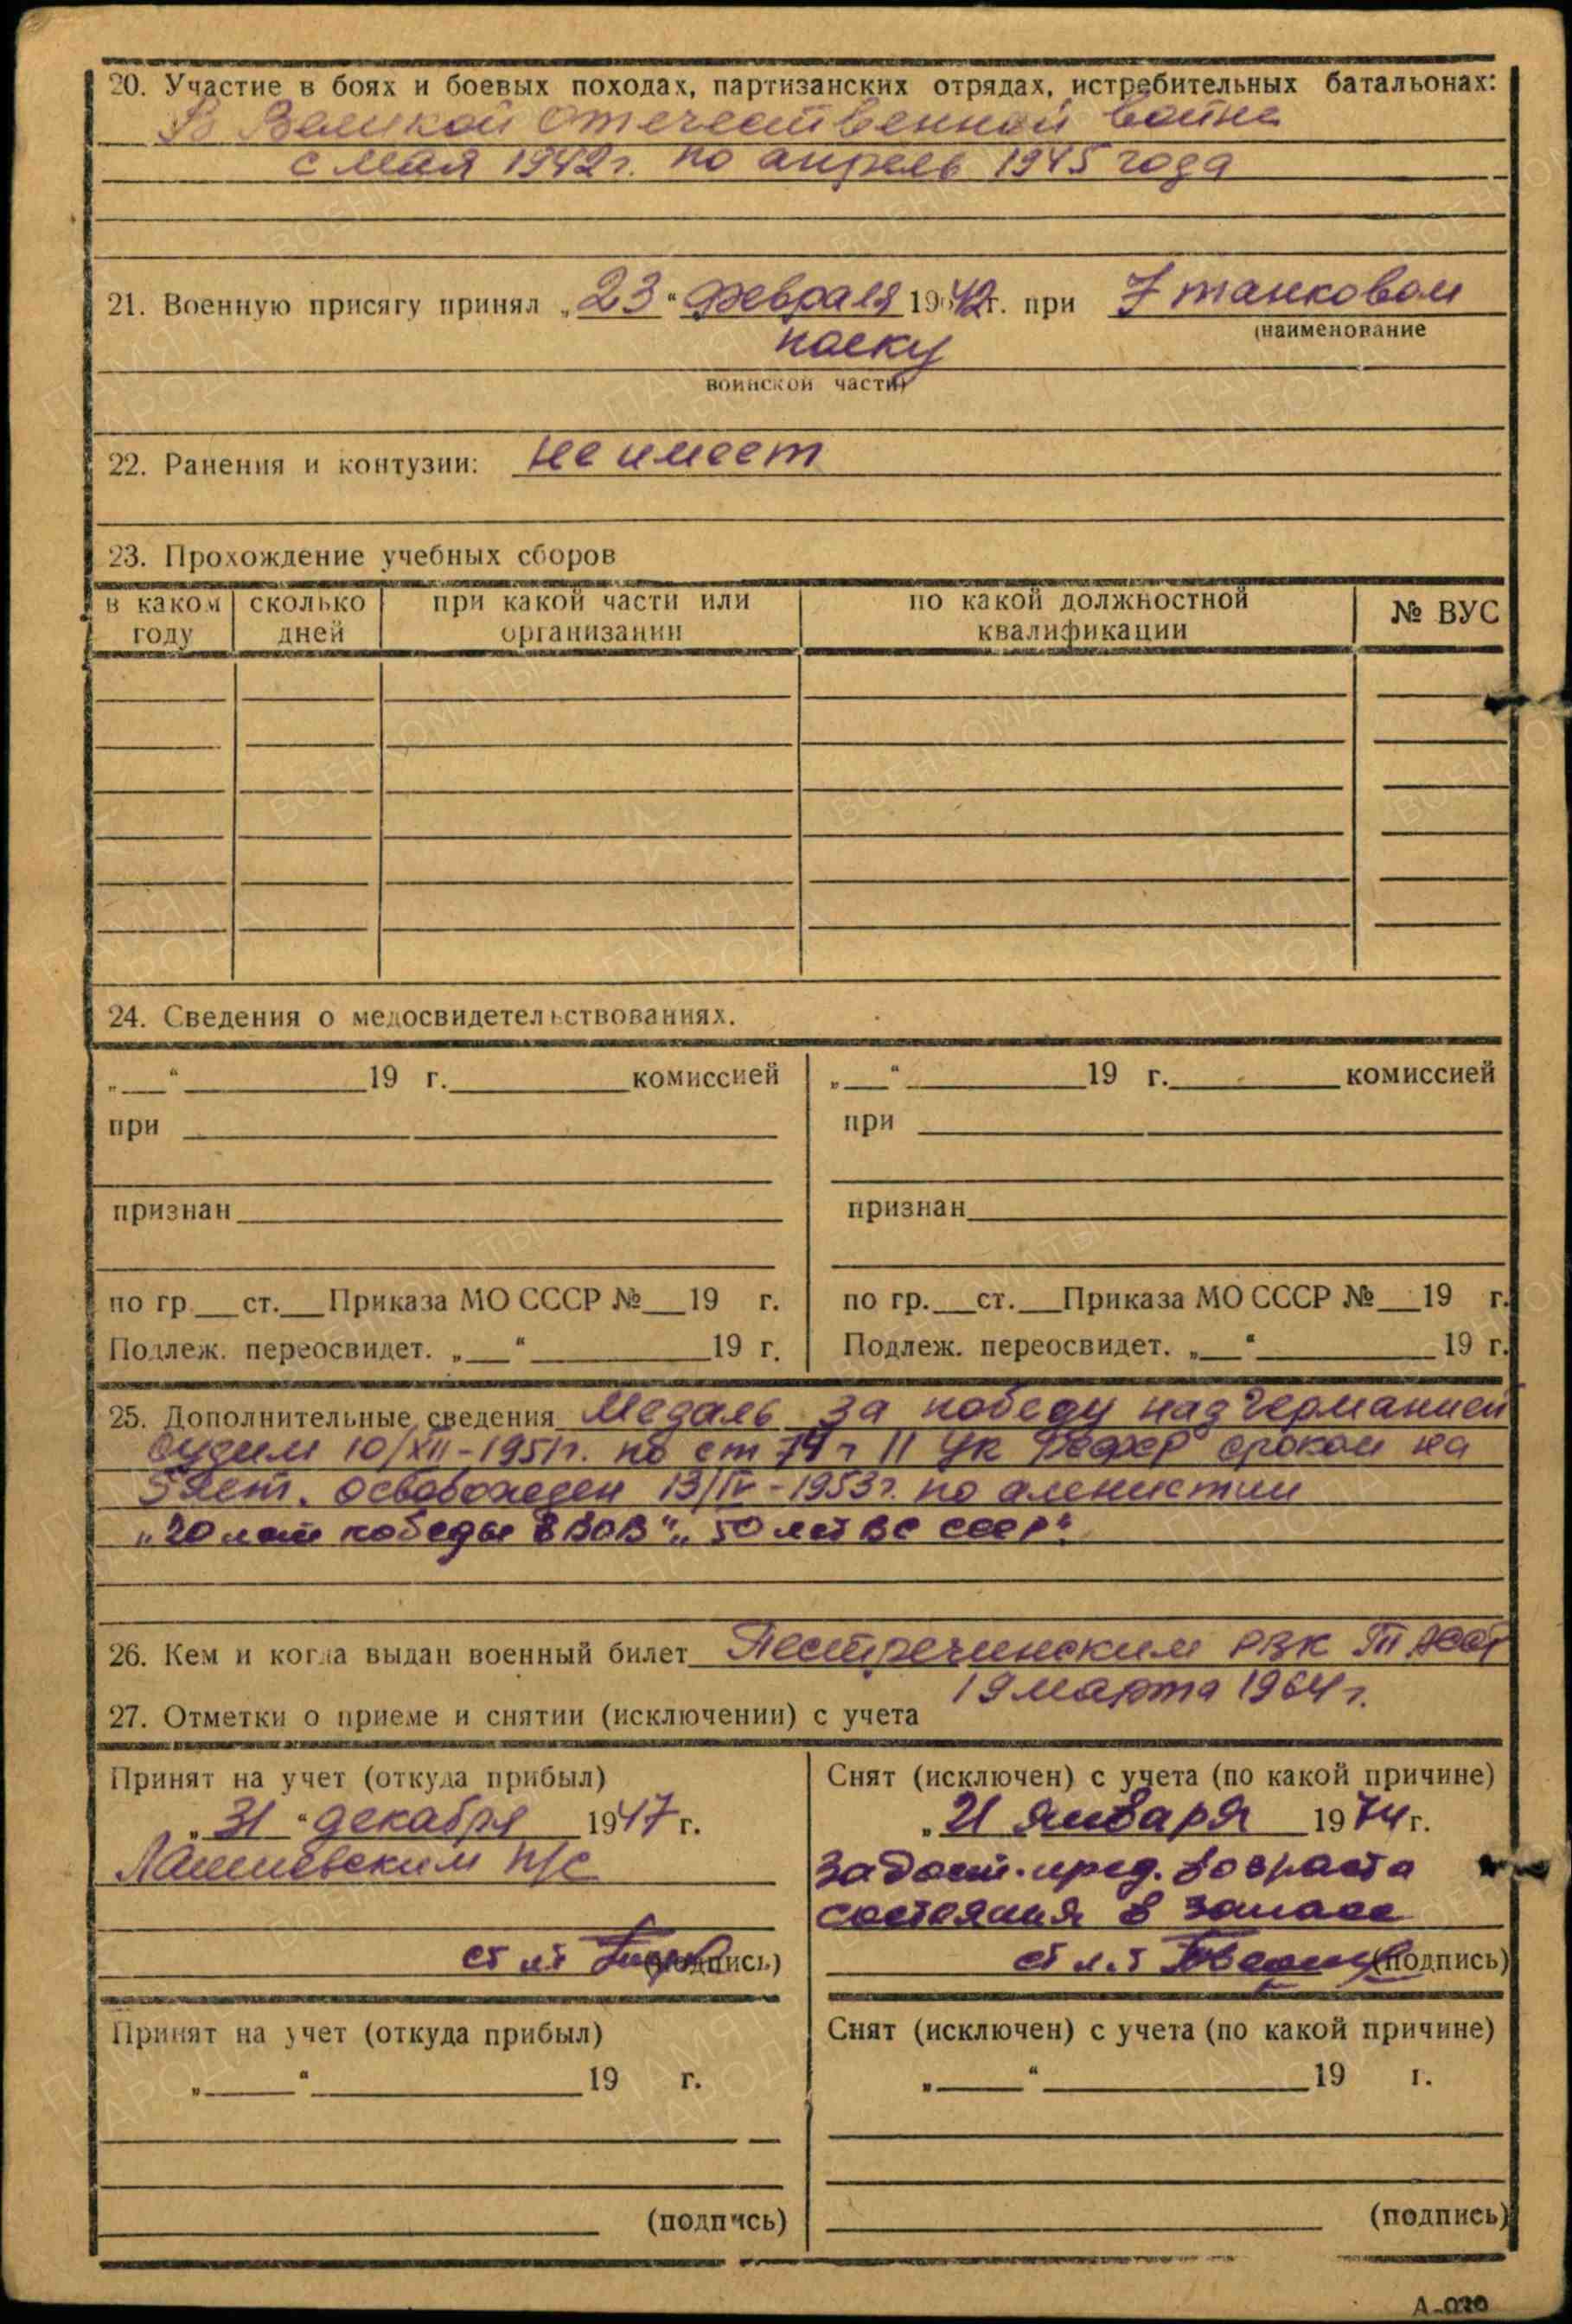 20. Участие в боях и боевых походах, партизанских отрядах, истребительных батальонах:
В Великой Отечественной войне
с мая 1942 г. по апрель 1945 года
21. Военную присягу принял „23“ февраля 1942 г. при 7 танковом
(наименование
полку
воинской части)
22. Ранения и контузии: не имеет
23. Прохождение учебных сборов
в каком году | сколько дней | при какой части или организации | по какой должностной квалификации | № ВУС
24. Сведения о медосвидетельствованиях.
„___“ ________19 г.________комиссией | „___“ ________19 г.________комиссией
при | при
признан | признан
по гр.___ст.___Приказа МО СССР №___19 г. | по гр.___ст.___Приказа МО СССР №___19 г.
Подлеж. переосвидет. „___“________19 г. | Подлеж. переосвидет. „___“________19 г.
25. Дополнительные сведения Медаль За победу над Германией
судим 10/XII-1951г. по ст 74 ч II УК РСФСР сроком на
5 лет. освобожден 13/IV-1953г. по амнистии
„20 лет победы в ВОВ“ „50 лет ВС СССР“
26. Кем и когда выдан военный билет Пестречинским РВК ТАССР
19 марта 1964 г.
27. Отметки о приеме и снятии (исключении) с учета
Принят на учет (откуда прибыл) | Снят (исключен) с учета (по какой причине)
„31“ декабря 1947 г. | „21 января 1974 г.
Лаишевским | за дост. пред. возраста
состояния в запасе
ст л-т (подпись) | ст л-т (подпись)
Принят на учет (откуда прибыл) | Снят (исключен) с учета (по какой причине)
„___“________19 г. | „___“________19 г.
(подпись) | (подпись)
А-030